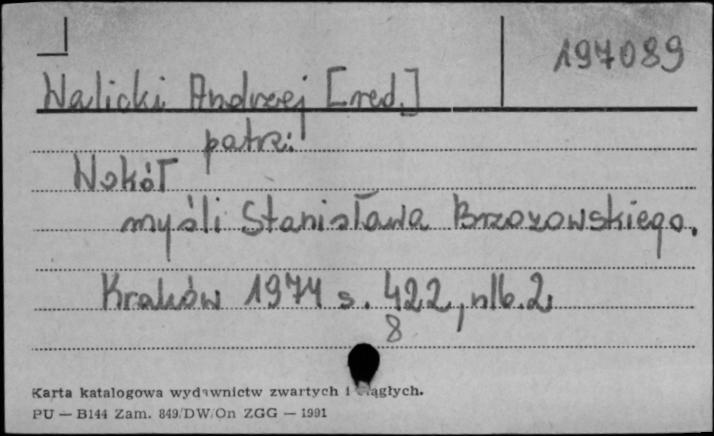 197089
Walicki Andrzej [red.]
patrz:
Wokół
myśli Stanisława Brzozowskiego.
Kraków 1974 s. 422, nlb. 2
8
Karta katalogowa wydawnictw zwartych i ciągłych.
PU — B144 Zam. 849/DW/On ZGG — 1991